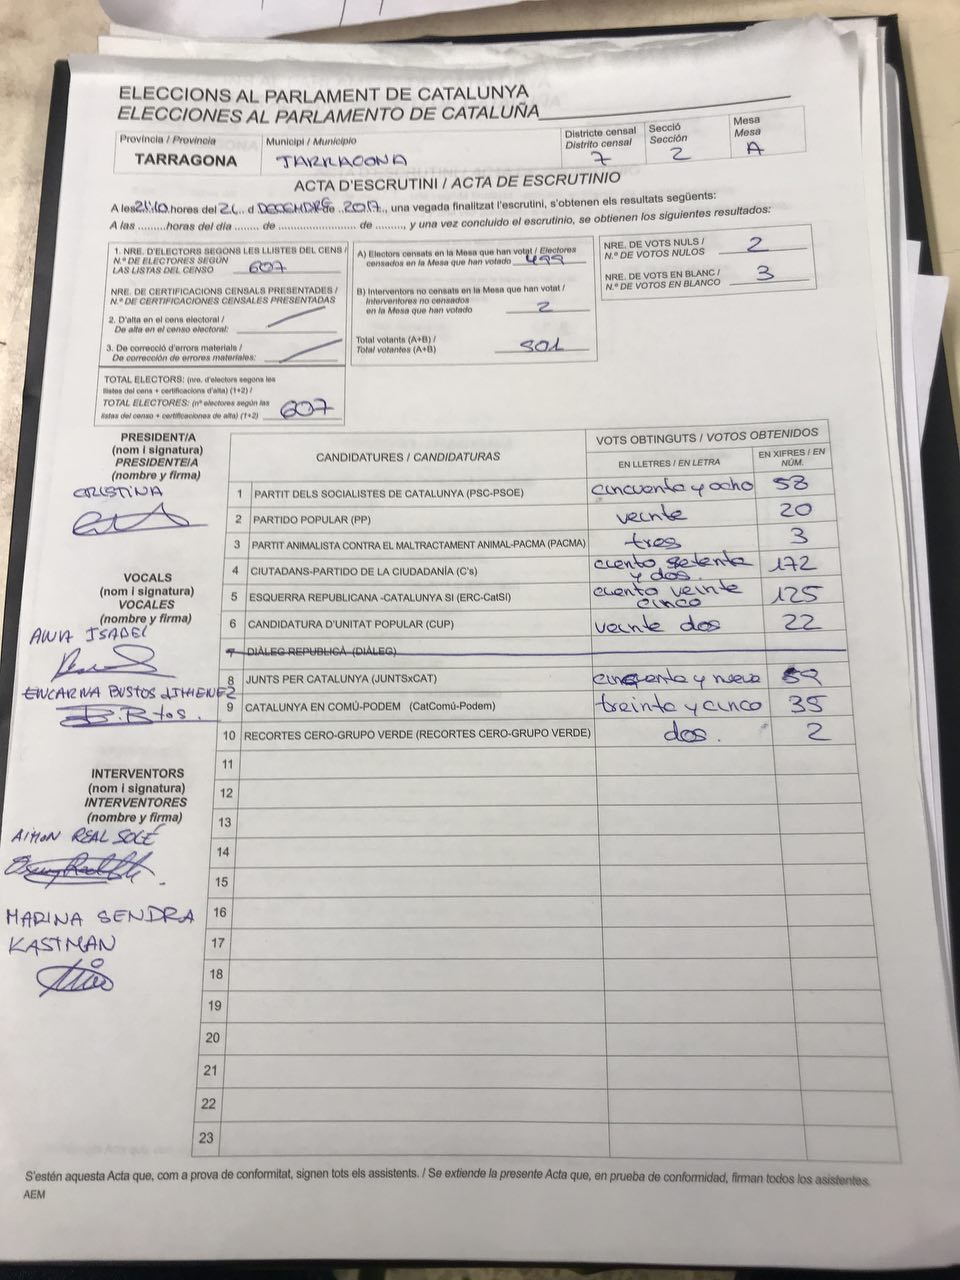 ELECCIONS AL PARLAMENT DE CATALUNYA
ELECCIONES AL PARLAMENTO DE CATALUÑA
Província / Provincia
TARRAGONA
Municipi / Municipio
TARRAGONA
Districte censal
Distrito censal
7
Secció
Sección
2
Mesa
Mesa
A
ACTA D'ESCRUTINI / ACTA DE ESCRUTINIO
A les 21:10 hores del 21 d DECEMBRE de 2017, una vegada finalitzat l'escrutini, s'obtenen els resultats següents:
A las .........horas del día ....... de .................... de ........., y una vez concluido el escrutinio, se obtienen los siguientes resultados:
1. NRE. D'ELECTORS SEGONS LES LLISTES DEL CENS /
N.º DE ELECTORES SEGÚN
LAS LISTAS DEL CENSO 607
NRE. DE CERTIFICACIONS CENSALS PRESENTADES /
N.º DE CERTIFICACIONES CENSALES PRESENTADAS
2. D'alta en el cens electoral /
De alta en el censo electoral:
3. De correcció d'errors materials /
De corrección de errores materiales:
TOTAL ELECTORS: (nre. d'electors segons les
llistes del cens + certificacions d'alta) (1+2) /
TOTAL ELECTORES: (nº electores según las
listas del censo + certificaciones de alta) (1+2) 607
A) Electors censats en la Mesa que han votat / Electores
censados en la Mesa que han votado 499
B) Interventors no censats en la Mesa que han votat /
Interventores no censados
en la Mesa que han votado 2
Total votants (A+B) /
Total votantes (A+B) 501
NRE. DE VOTS NULS /
N.º DE VOTOS NULOS 2
NRE. DE VOTS EN BLANC /
N.º DE VOTOS EN BLANCO 3
PRESIDENT/A
(nom i signatura)
PRESIDENTE/A
(nombre y firma)
CRISTINA
VOCALS
(nom i signatura)
VOCALES
(nombre y firma)
ANA ISABEL
ENCARNA BUSTOS JIMENEZ
INTERVENTORS
(nom i signatura)
INTERVENTORES
(nombre y firma)
REAL SOLÉ
MARINA SENDRA
KASTMAN
CANDIDATURES / CANDIDATURAS
VOTS OBTINGUTS / VOTOS OBTENIDOS
EN LLETRES / EN LETRA
EN XIFRES / EN NÚM.
1 PARTIT DELS SOCIALISTES DE CATALUNYA (PSC-PSOE) cincuenta y ocho 58
2 PARTIDO POPULAR (PP) veinte 20
3 PARTIT ANIMALISTA CONTRA EL MALTRACTAMENT ANIMAL-PACMA (PACMA) tres 3
4 CIUTADANS-PARTIDO DE LA CIUDADANÍA (C's) ciento setenta y dos. 172
5 ESQUERRA REPUBLICANA -CATALUNYA SI (ERC-CatSí) ciento veinte cinco 125
6 CANDIDATURA D'UNITAT POPULAR (CUP) veinte dos 22
7 DIÀLEG REPUBLICÀ (DIÀLEG)
8 JUNTS PER CATALUNYA (JUNTSxCAT) cincuenta y nueve 59
9 CATALUNYA EN COMÚ-PODEM (CatComú-Podem) treinta y cinco 35
10 RECORTES CERO-GRUPO VERDE (RECORTES CERO-GRUPO VERDE) dos. 2
11
12
13
14
15
16
17
18
19
20
21
22
23
S'estén aquesta Acta que, com a prova de conformitat, signen tots els assistents. / Se extiende la presente Acta que, en prueba de conformidad, firman todos los asistentes.
AEM